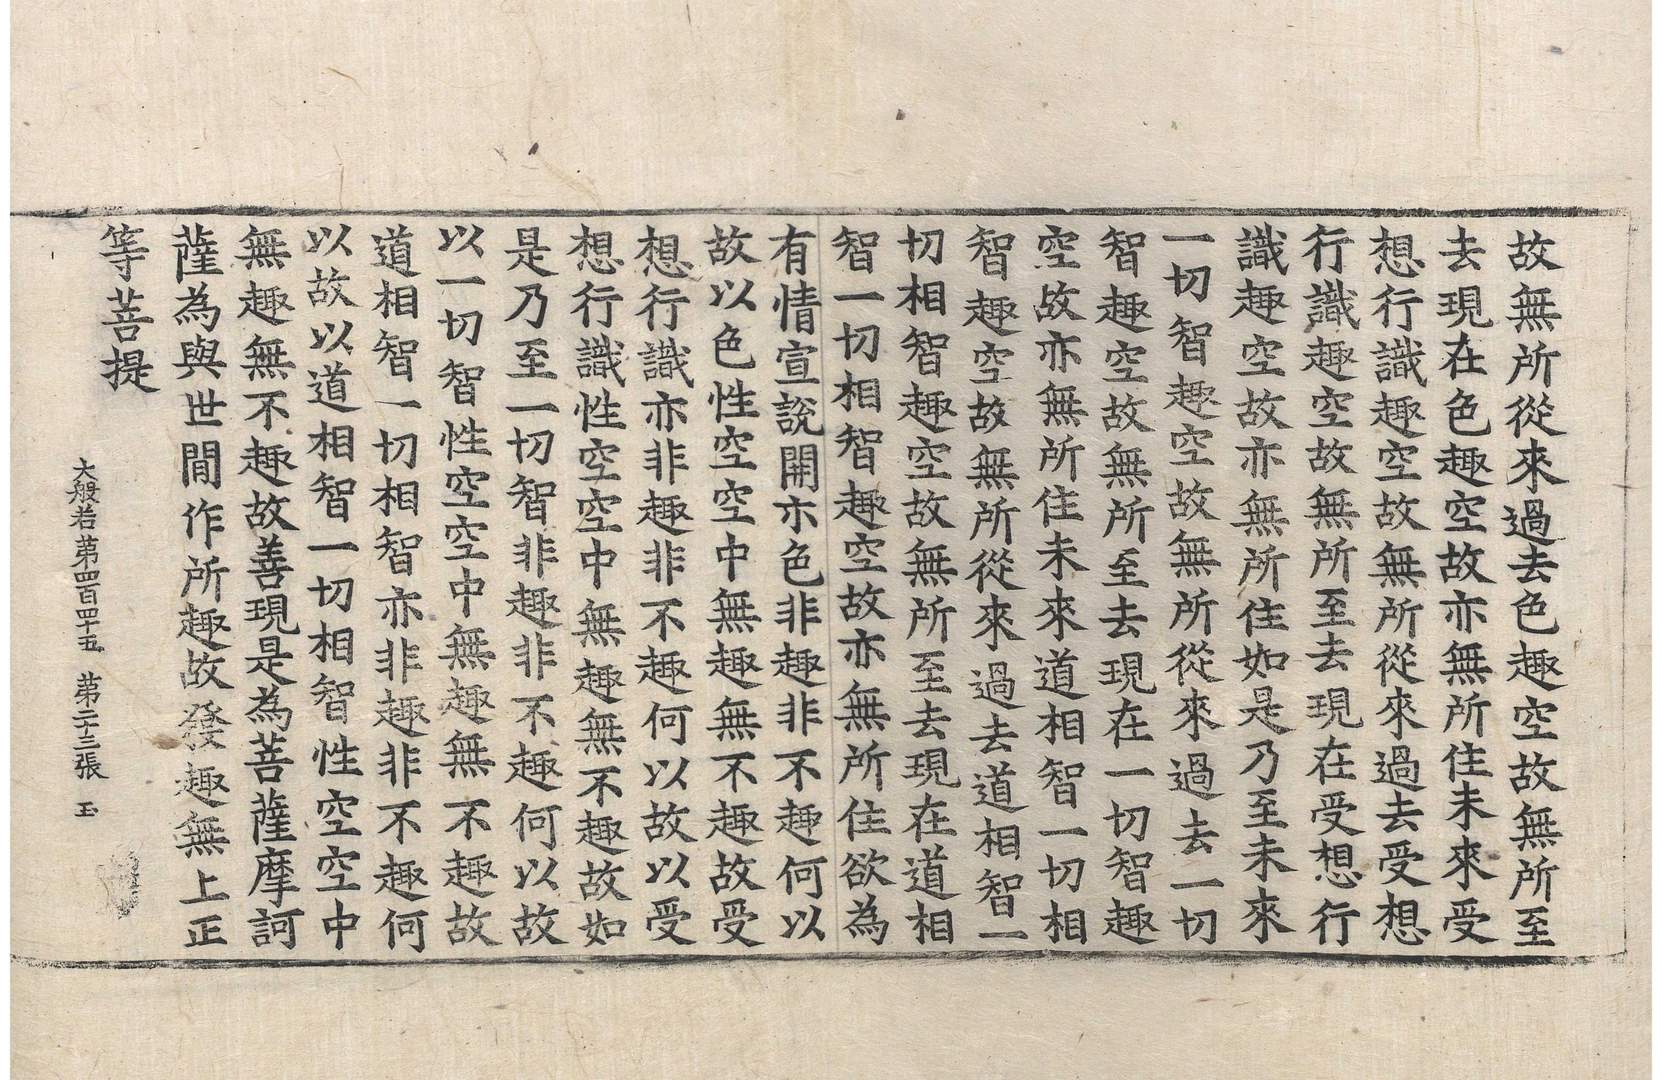 故無所從來過去色趣空故無所至
去現在色趣空故亦無所住未來受
想行識趣空故無所從來過去受想
行識趣空故無所至去現在受想行
識趣空故亦無所住如是乃至未來
一切智趣空故無所從來過去一切
智趣空故無所至去現在一切智趣
空故亦無所住未來道相智一切相
智趣空故無所從來過去道相智一
切相智趣空故無所至去現在道相
智一切相智趣空故亦無所住欲為
有情宣說開示色非趣非不趣何以
故以色性空空中無趣無不趣故受
想行識亦非趣非不趣何以故以受
想行識性空空中無趣無不趣故如
是乃至一切智非趣非不趣何以故
以一切智性空空中無趣無不趣故
道相智一切相智亦非趣非不趣何
以故以道相智一切相智性空空中
無趣無不趣故善現是為菩薩摩訶
薩為與世間作所趣故發趣無上正
等菩提
大般若第四百四十五 第二十三張 玉